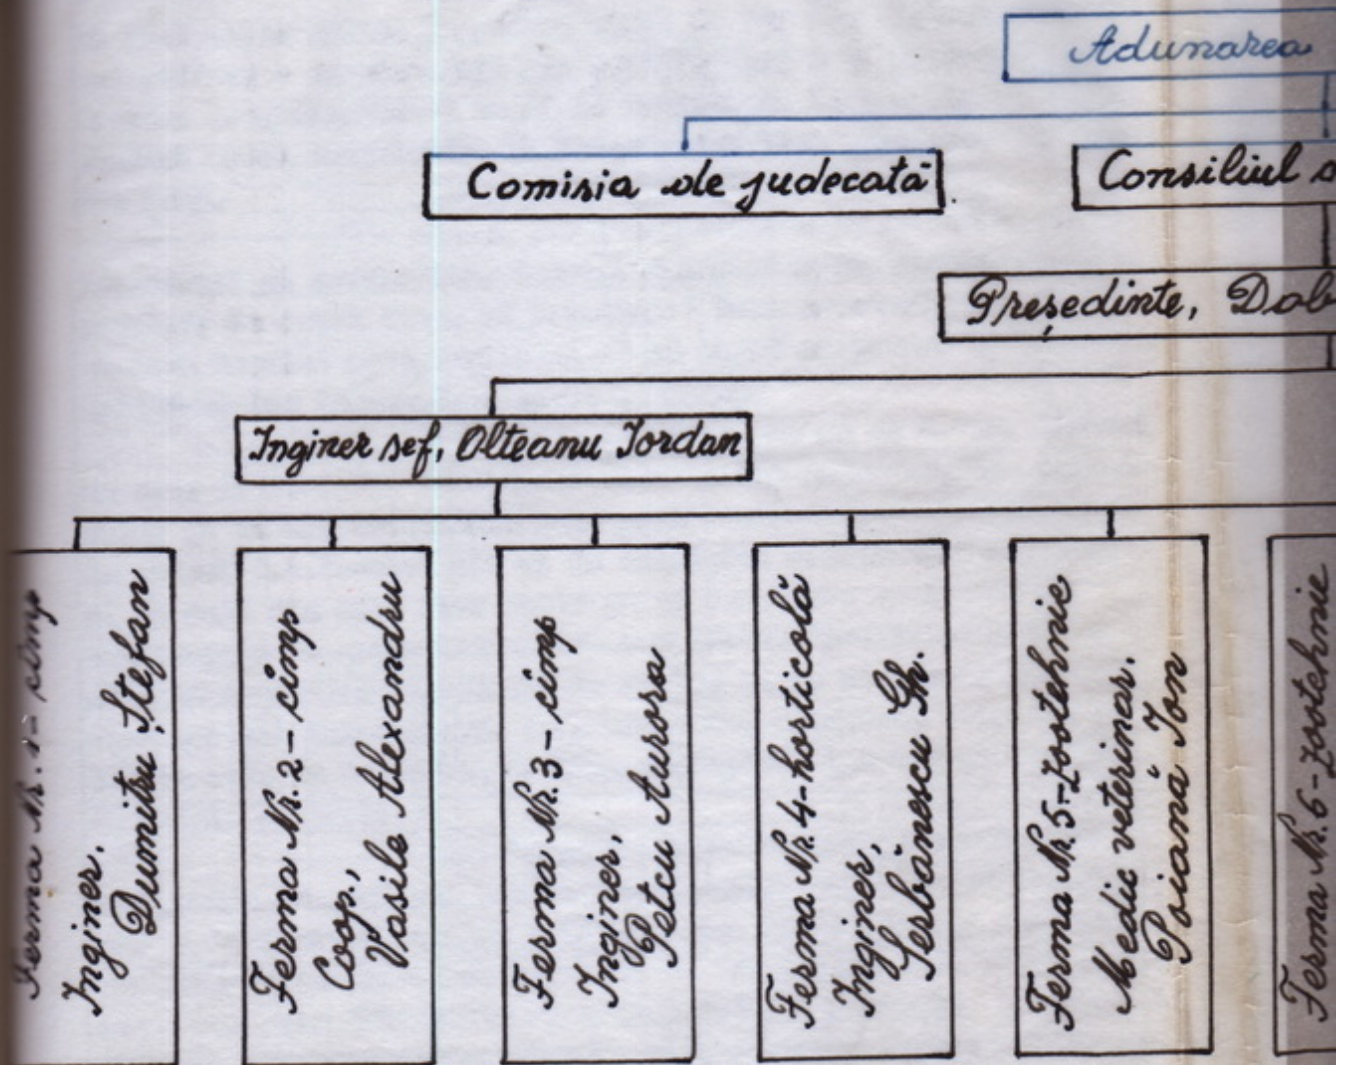 Adunarea
Comisia de judecată
Consiliul
Președinte,
Inginer sef, Olteanu Iordan
Ferma Nr. 1 - cîmp
Inginer.
Dumitru Ștefan
Ferma Nr. 2 - cîmp
Coop.,
Vasile Alexandru
Ferma Nr. 3 - cîmp
Inginer,
Petcu Aurora
Ferma Nr. 4 - horticolă
Inginer,
Serbănescu Gh.
Ferma Nr. 5 - zootehnie
Medic veterinar.
Poiană Ion
Ferma Nr. 6 - zootehnie